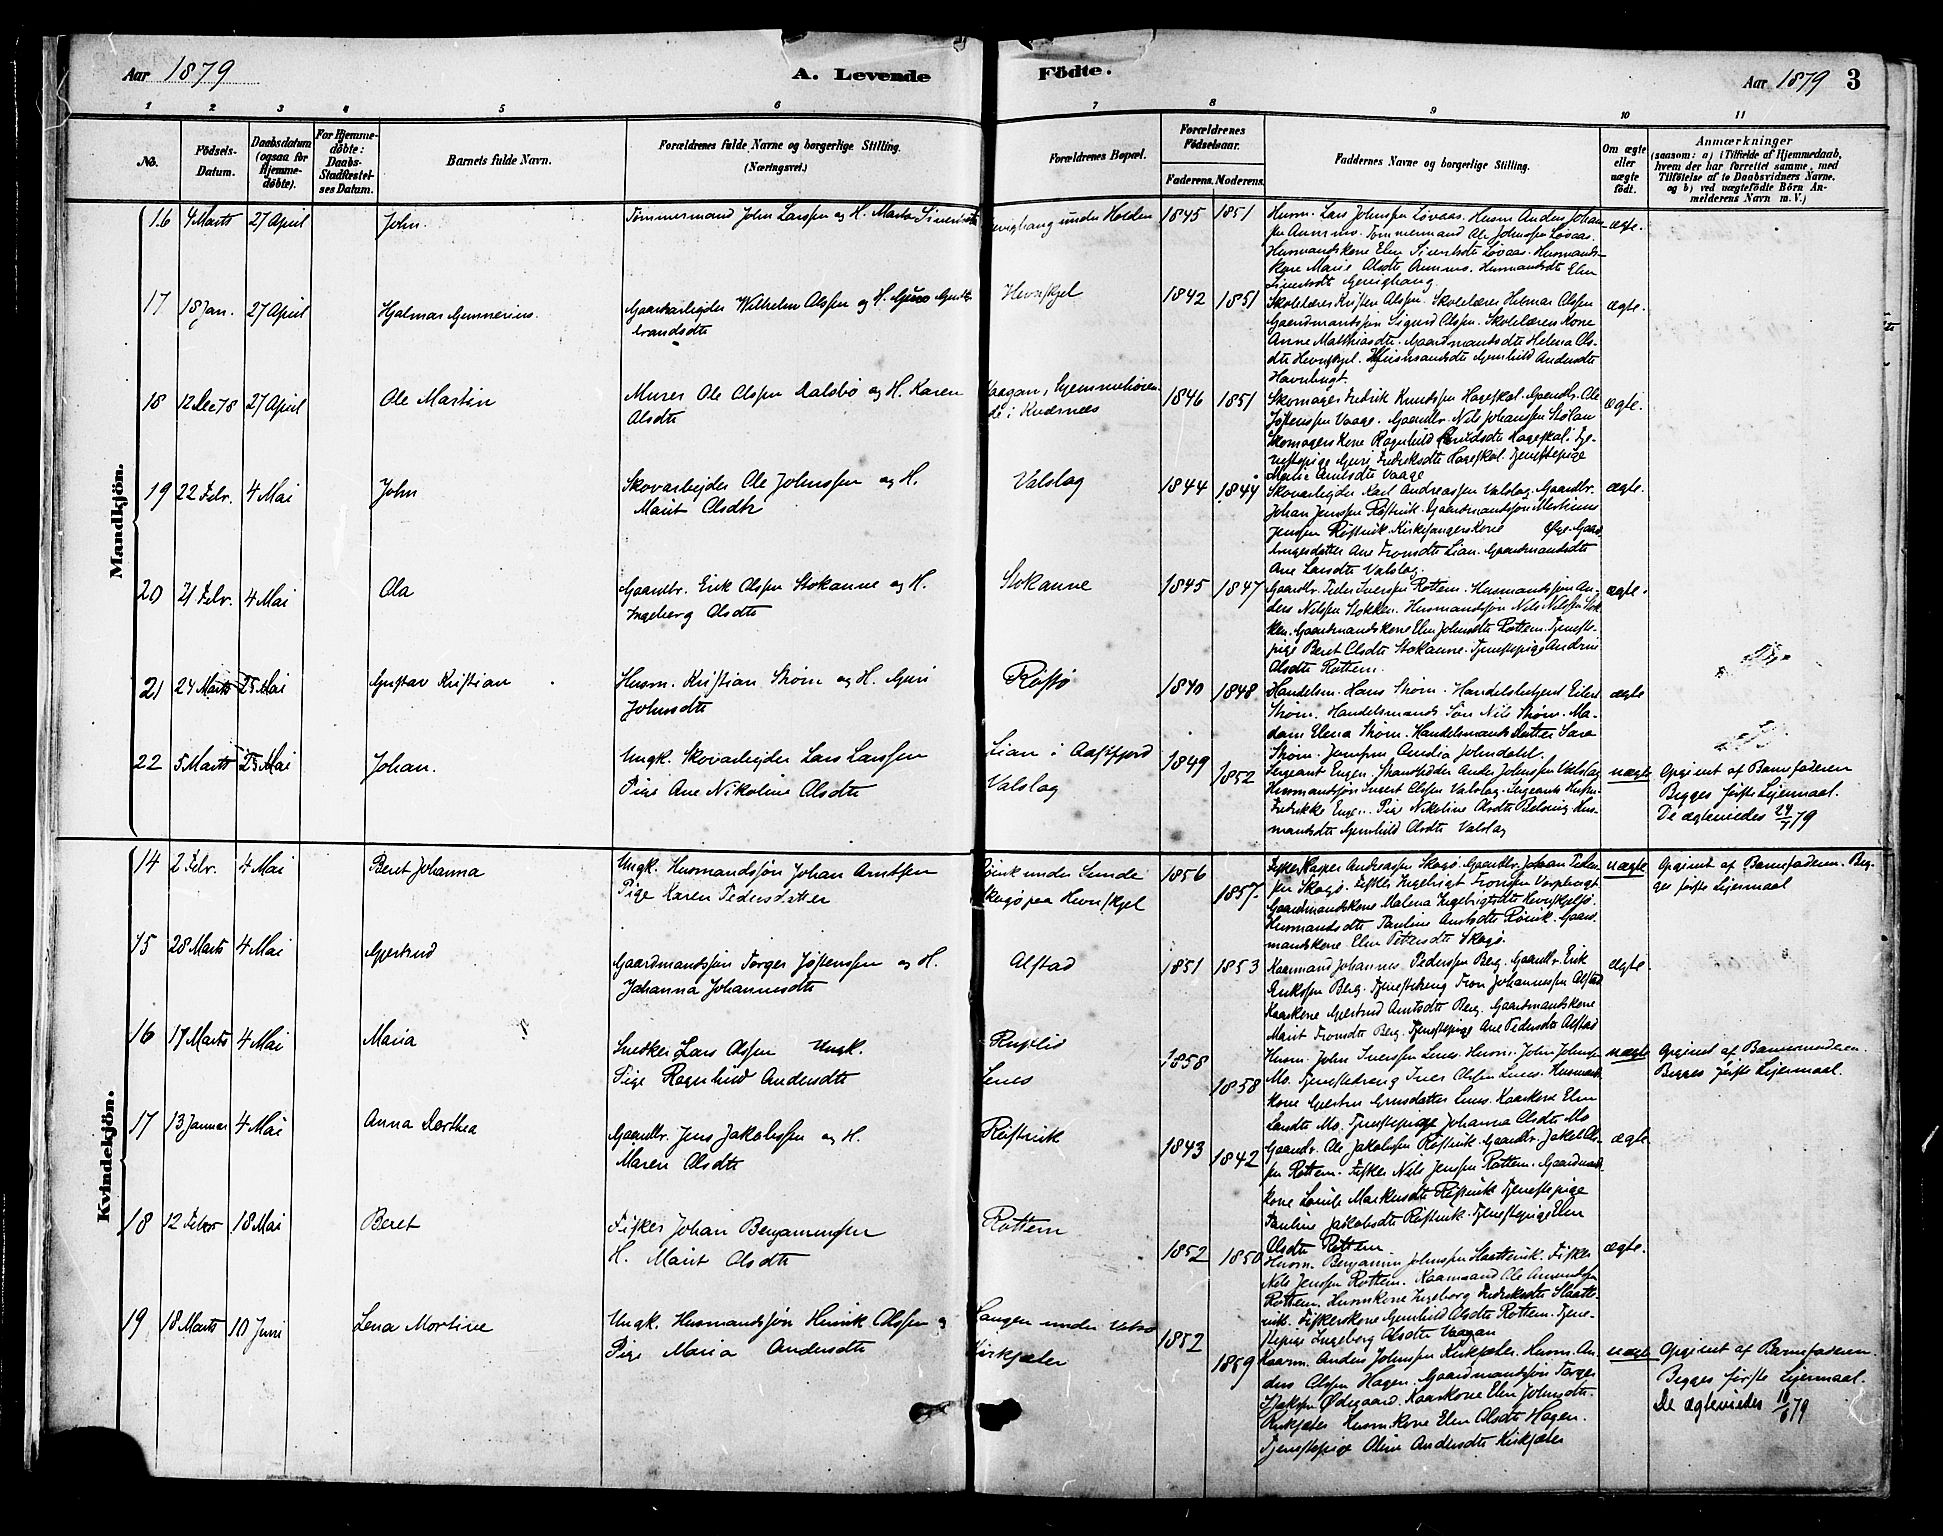 Aar 1879
A. Levende
Födte.
Aar 1879
3
1 2 3 4 5 6 7 8 9 10 11
No.
Födsels-
Datum.
Daabsdatum
(ogsaa for
Hjemme-
döbte).
For Hjemme-
döbte:
Daabs-
Stadfæstel-
ses Datum.
Barnets fulde Navn.
Forældrenes fulde Navne og borgerlige Stilling.
(Næringsvei.)
Forældrenes Bopæl.
Forældrenes
Födselsaar.
Faderens. Moderens.
Faddernes Navne og borgerlige Stilling.
Om ægte
eller
uægte
födt.
Anmærkninger
(saasom: a) i Tilfælde af Hjemmedaab,
hvem der har forrettet samme, med
Tilföielse af to Daabsvidners Navne,
og b) ved uægtefödte Börn An-
melderens Navn m. V.)
Mandkjön.
16 4 Marts 27 April John. Tømmermand John Larssen og H. Marta under Holden 1845 1851 ægte.
Husm. Lars Johnssen Løvaas. Husm Anders Johan-
Tømmermand Ole Johnssen Løvaas.
Husmandskone Elen Sivertsdt Løvaas. Husmands-
kone Marie Olsdt Husmandsdt Elen
Sivertsdt
17 18 Jan. 27 April Hjalmar Gunnerius. Gaardarbeider Wilhelm Olssen og H. Guro Gud-
brandsdt
Hevnskjel 1842 1851 ægte.
Skolelærer Kristen Olssen. Skolelærer Hilmar Olssen
Gaardmandssøn Sigurd Olssen. Skolelærers Kone
Anne Matthiasdt. Gaardmandsdt Helena Ols-
dt Hevnskjel. Husmandsdt Gunhild Andersdt
Havnbugt.
18 12 Dec 78 27 April Ole Martin Murer Ole Olssen Dalsbø og H. Karen
Olsdt
Vaagan, hjemmehøren-
de i Kvernæs 1846 1851 ægte.
Skomager Fredrik Knudssen Hageskal. Gaardbr. Ole
Jøstenssen Vaage. Gaardbr. Nils Johanssen Stølan
Skomagers Kone Ragnhild Hageskal. Tje-
nestepige Guri Fredriksdt Hageskal. Tjenestepige
Marie Arntsdt Vaage
19 22 Febr. 4 Mai John Skovarbejder Ole Johnssen og H.
Marit Olsdtr
Valslag 1844 1844 ægte.
Skovarbejder Karl Andreassen Valslag. Gaardbr.
Johan Jenssen Røstvik. Gaardmandssøn Martinus
Jenssen Røstvik. Kirkesangers Kone Gaard-
brugersdatter Ane Tronsdtr Lian. Gaardmandsdt
Ane Larsdt Valslag.
20 21 Febr. 4 Mai Ola Gaardbr. Erik Olssen Stokanne og H.
Ingeborg Olsdtr
Stokanne 1845 1847 ægte.
Gaardbr. Peder Iverssen Rottem. Husmandssøn An-
ders Nilssen Stokken. Husmandssøn Nils Nilssen Stok-
ken. Gaardmandskone Elen Johnsdt Rottem. Tjeneste-
pige Beret Olsdt Stokanne. Tjenestepige Andrine
Olsdt Rottem.
21 24 Marts 25 Mai Gustav Kristian Husm. Kristian Strøm og H. Guri
Johnsdtr
1840 1848 ægte
Handelsm. Hans Strøm. Handelsbetjent Eilert
Strøm. Handelsmands Søn Nils Strøm. Ma-
dam Elena Strøm. Handelsmands Datter Sara
Strøm. Jomfru
22 5 Marts 25 Mai Johan. Ungk. Skovarbejder Lars Larssen
Pige Ane Nikoline Olsdtr
Lian i Aastfjord
Valslag
1849 1852 uægte
Sergeant Engen. Strandsidder Anders Johnssen Valslag
Husmandssøn Sivert Olssen Valslag. Sergeants Hustru
Fredrikke Engen. Pige Nikoline Olsdt Belsvig. Hus-
mandsdt Gunhild Olsdt Valslag
Opgivet af Barnefaderen
Begges første Lejermaal.
De ægteviedes
Kvindekjön.
14 2 Febr. 4 Mai Beret Johanna Ungk. Husmandssøn Johan Arntssen
Pige Karen Pedersdatter
Røvik under Sunde
Skogø paa Hevnskjel
1856 1857 uægte
Fisker Kasper Andreassen Skogø. Gaardbr. Johan Peder-
sen Skogø. Fisker Ingebrigt Tronssen
Gaardmandskone Malena Ingebrigtsdt Hevnskjelsø.
Husmandsdt Pauline Arntsdt Røvik. Gaard-
mandskone Elen Petersdt Skogø.
Opgivet af Barnefaderen. Beg-
ges første Lejermaal
15 28 Marts 4 Mai Gjertrud Gaardmandssøn Torger Jøstenssen og H.
Johanna Johannesdt
Alstad 1851 1853 ægte
Kaarmand Johannes Pederssen Berg. Gaardbr. Erik
Erikssen Berg. Tjenestdreng Tron Johannessen Alstad
Kaarkone Gjertrud Arntsdt Berg. Gaardmandskone
Marit Tronsdt Berg. Tjenestepige Ane Pedersdt Alstad
16 17 Marts 4 Mai Maria Snedker Lars Olssen Ungk.
Pige Ragnhild Andersdtr
Ruplid
Lenes
1858 1858 uægte
Husm. John Iverssen Lenes. Husm. John Johnssen
Mo. Tjenestedreng Iver Olssen Lenes. Husmands-
kone Gjertru Arnsdatter Lenes. Kaarkone Elen
Larsdt Mo. Tjenestepige Johanna Olsdt Mo
Opgivet af Barnemoderen.
Begges første Lejermaal.
17 13 Januar 4 Mai Anna Dorthea Gaardbr. Jens Jakobssen og H.
Maren Olsdtr
Røstvik 1843 1842 ægte
Gaardbr. Ole Jakobssen Røstvik. Gaardbr. Jakob Ols-
sen Rottem. Fisker Nils Jenssen Rottem. Gaardmands-
kone Lovise Markusdt Røstvik. Tjenestepige
Pauline Jakobsdt Røstvik. Tjenestepige Elen
Olsdt Rottem.
18 12 Febr 18 Mai Beret Fisker Johan Benjaminssen
H. Marit Olsdtr
Rottem 1852 1850 ægte.
Husm. Benjamin Johnssen Slaattevik. Fisker
Nils Jenssen Rottem. Kaarmand Ole Amundssen
Rottem. Husmkone Ingeborg Fredriksdt Slaatte-
vik. Fiskerkone Gunhild Olsdt Rottem. Tjene-
stepige Ingeborg Olsdt Vaagan
19 18 Marts 10 Juni Lena Mortine Ungk. Husmandssøn Henrik Olssen og
Pige Maria Andersdtr
Hangen under
Kirksæter
1852 1859 uægte
Kaarm. Anders Johnssen Kirksæter. Husm. An-
ders Olssen Hagen. Gaardmandssøn Torger
Ødegaard. Kaarkone Elen Johnsdt
Kirksæter Husm.kone Elen Olsdt Hagen.
Tjenestepige Oline Andersdt Kirksæter
Opgivet af Barnefaderen.
Begges første Lejermaal.
De ægteviedes 10/6 79